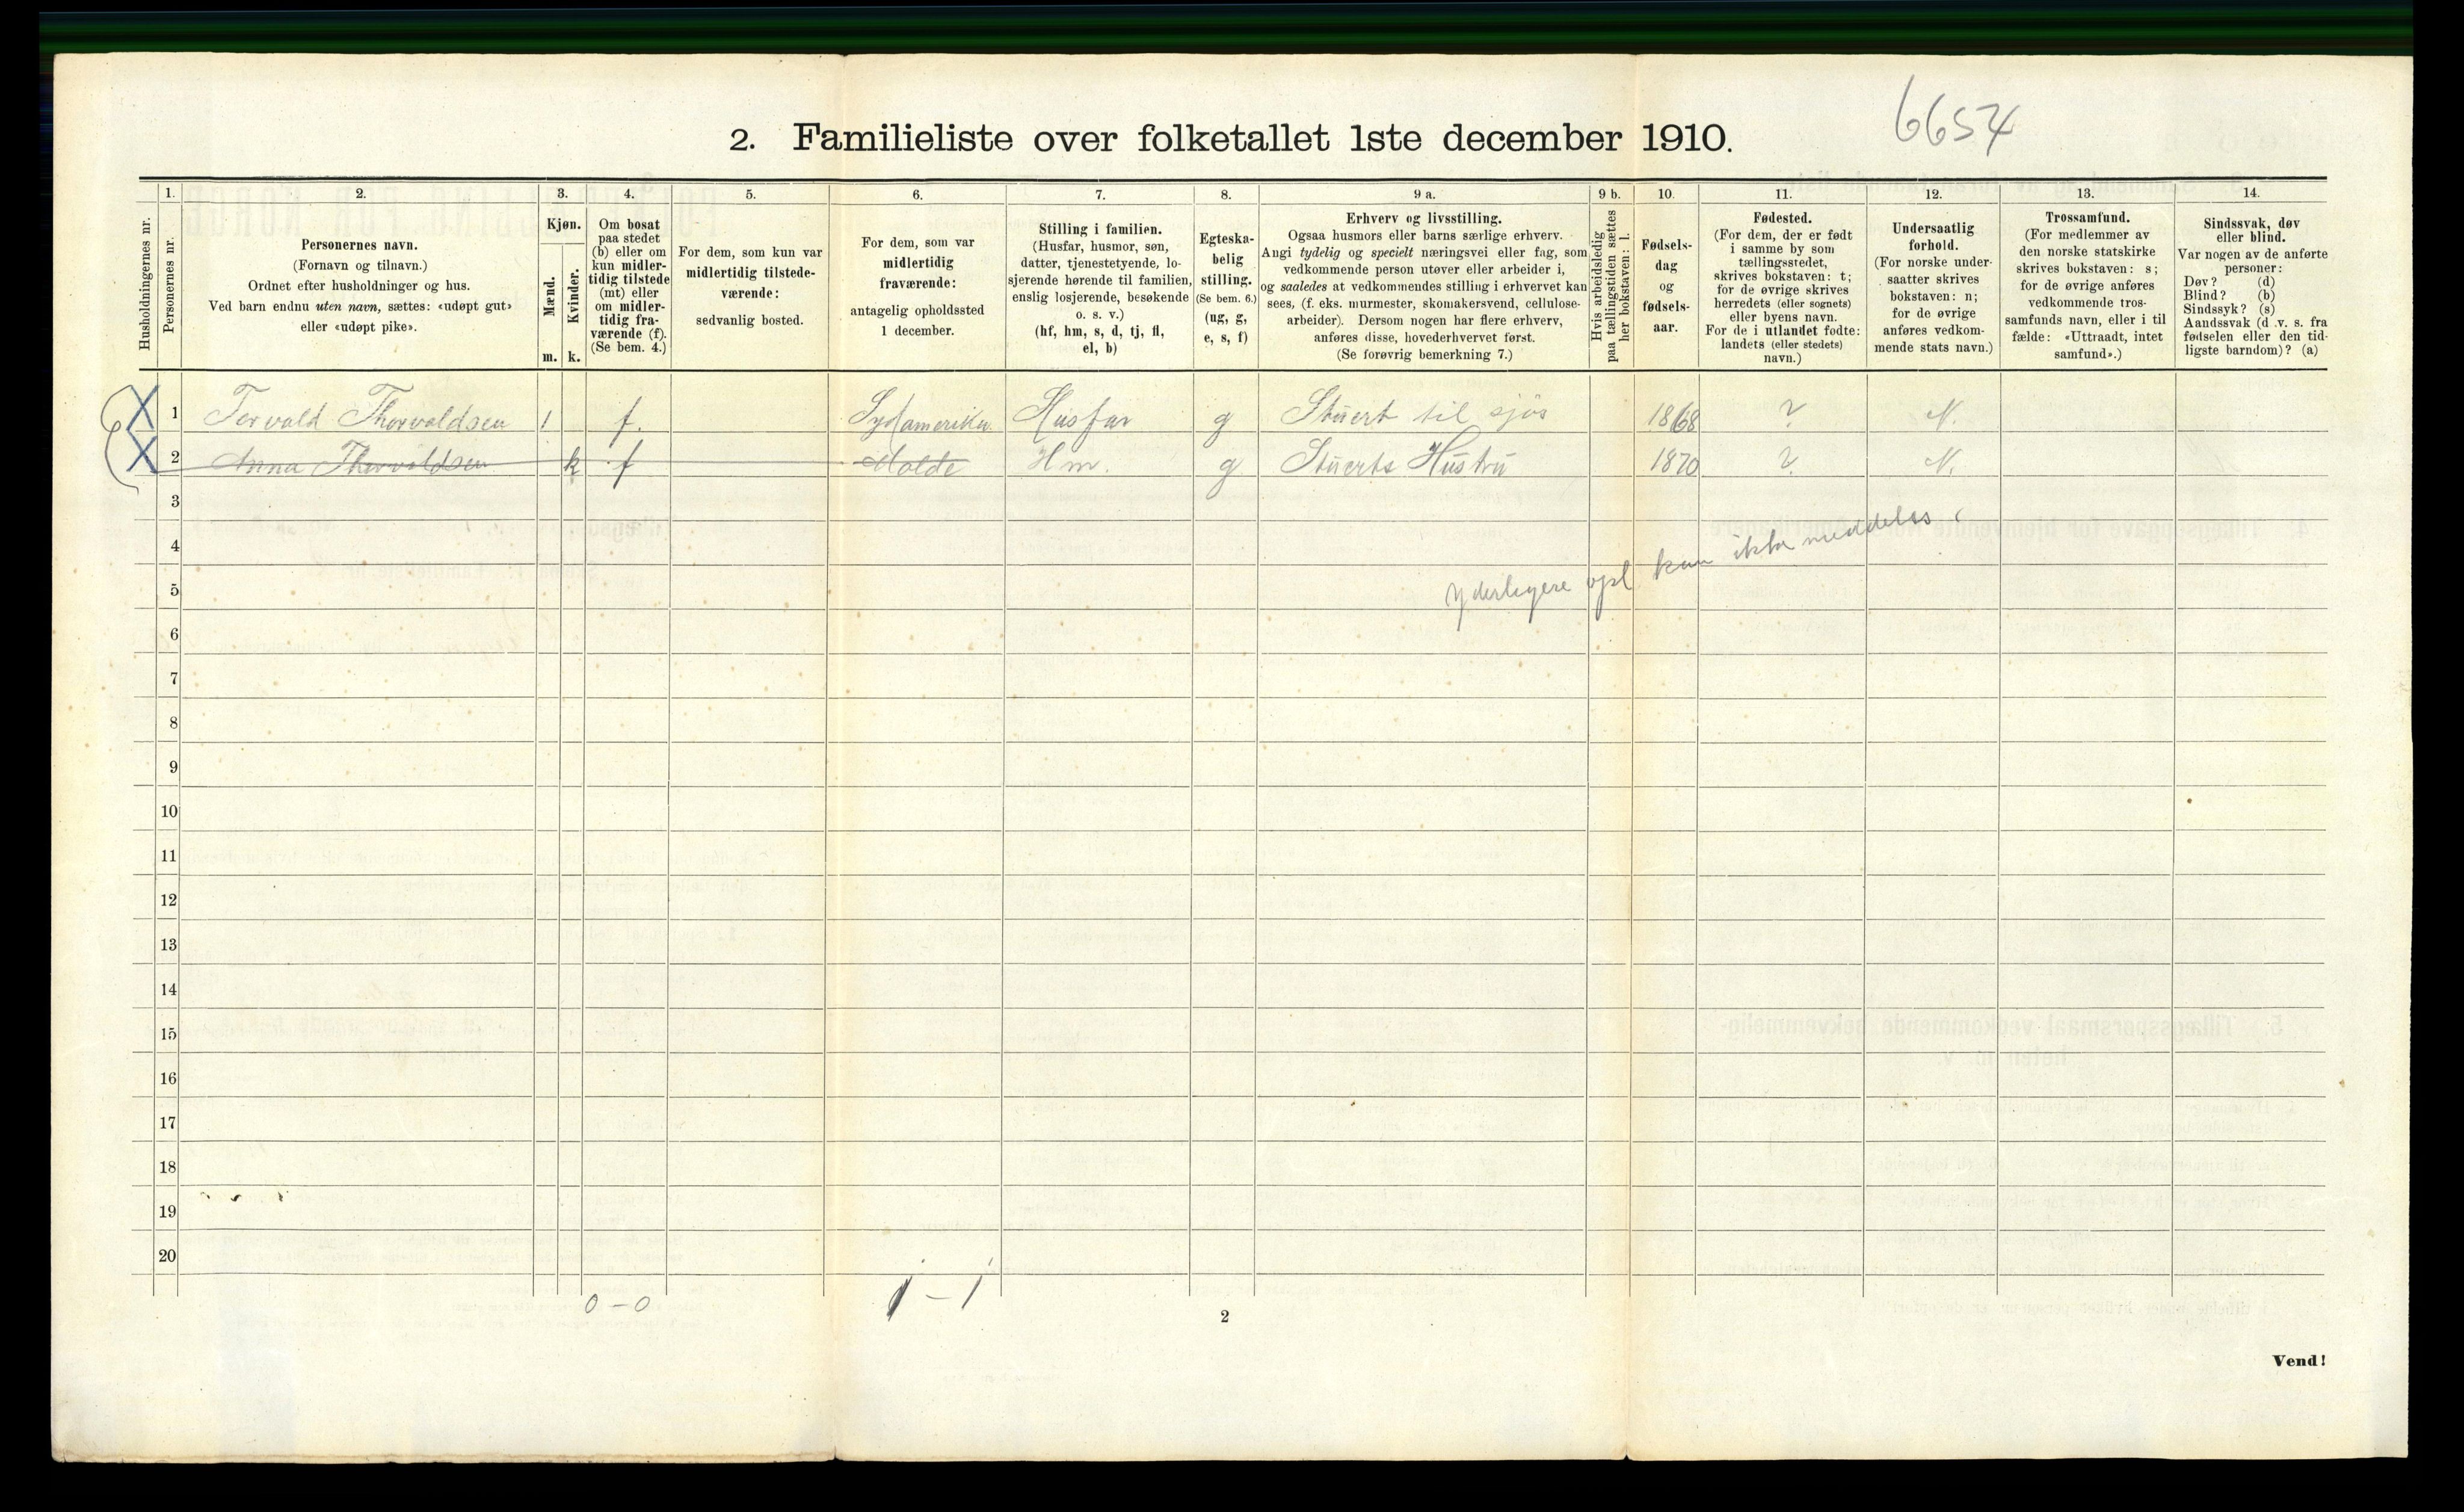 6654
2. Familieliste over folketallet 1ste december 1910.
Husholdningernes nr.
1.
Personernes nr.
2.
Personernes navn.
(Fornavn og tilnavn.)
Ordnet efter husholdninger og hus.
Ved barn endnu uten navn, sættes: «udøpt gut»
eller «udøpt pike».
3.
Kjøn.
Mænd.
m.
Kvinder.
k.
4.
Om bosat
paa stedet
(b) eller om
kun midler-
tidig tilstede
(mt) eller
om midler-
tidig fra-
værende (f).
(Se bem. 4.)
5.
For dem, som kun var
midlertidig tilstede-
værende:
sedvanlig bosted.
6.
For dem, som var
midlertidig
fraværende:
antagelig opholdssted
1 december.
7.
Stilling i familien.
(Husfar, husmor, søn,
datter, tjenestetyende, lo-
sjerende hørende til familien,
enslig losjerende, besøkende
o. s. v.)
(hf, hm, s, d, tj, fl,
el, b)
8.
Egteska-
belig
stilling.
(Se bem. 6.)
(ug, g,
e, s, f)
9 a.
Erhverv og livsstilling.
Ogsaa husmors eller barns særlige erhverv.
Angi tydelig og specielt næringsvei eller fag, som
vedkommende person utøver eller arbeider i,
og saaledes at vedkommendes stilling i erhvervet kan
sees, (f. eks. murmester, skomakersvend, cellulose-
arbeider). Dersom nogen har flere erhverv,
anføres disse, hovederhvervet først.
(Se forøvrig bemerkning 7.)
9 b.
Hvis arbeidsledig
paa tællingstiden sættes
her bokstaven: l.
10.
Fødsels-
dag
og
fødsels-
aar.
11.
Fødested.
(For dem, der er født
i samme by som
tællingsstedet,
skrives bokstaven: t;
for de øvrige skrives
herredets (eller sognets)
eller byens navn.
For de i utlandet fødte:
landets (eller stedets)
navn.)
12.
Undersaatlig
forhold.
(For norske under-
saatter skrives
bokstaven: n;
for de øvrige
anføres vedkom-
mende stats navn.)
13.
Trossamfund.
(For medlemmer av
den norske statskirke
skrives bokstaven: s;
for de øvrige anføres
vedkommende tros-
samfunds navn, eller i til
fælde: «Uttraadt, intet
samfund».)
14.
Sindssvak, døv
eller blind.
Var nogen av de anførte
personer:
Døv? (d)
Blind? (b)
Sindssyk? (s)
Aandssvak (d .v. s. fra
fødselen eller den tid-
ligste barndom)? (a)
1 Torvald Thorvaldsen 1 f. Sydamerika Husfar g Stuert til sjös 1868 ? N.
2 Anna Thorvaldsen k f Molde Hm. g Stuerts Hustru 1870 ? N.
3
4
5
Yderligere opl kan ikke meddeles.
6
7
8
9
10
11
12
13
14
15
16
17
18
19
20
0 – 0
1 – 1
2
Vend!